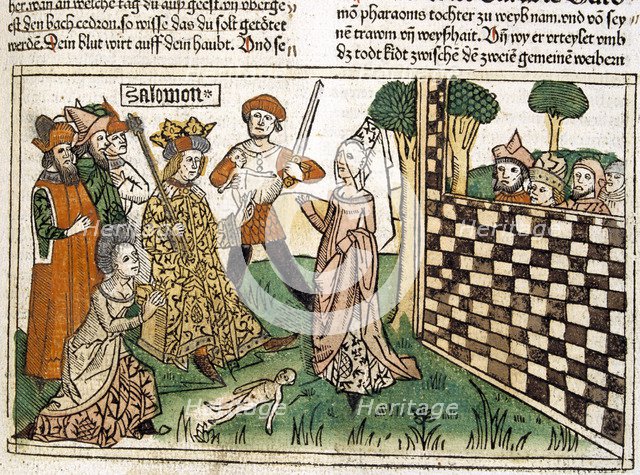 her. wan an welche tag du auß geest. vn̄ vberge
est den bach cedron. so wisse das du solt getötet
werdē. Dein blut wirt auff dein haubt. Und se
mō pharaonis tochter zu weyb nam. vnd vō sey
nē trawm vn̄ weyßhait. Vn̄ wy er vrteylet vmb
dz todt kidt zwischē dē zweiē gemeinē weibern
Salomon
heritage-images
Heritage
Heritage